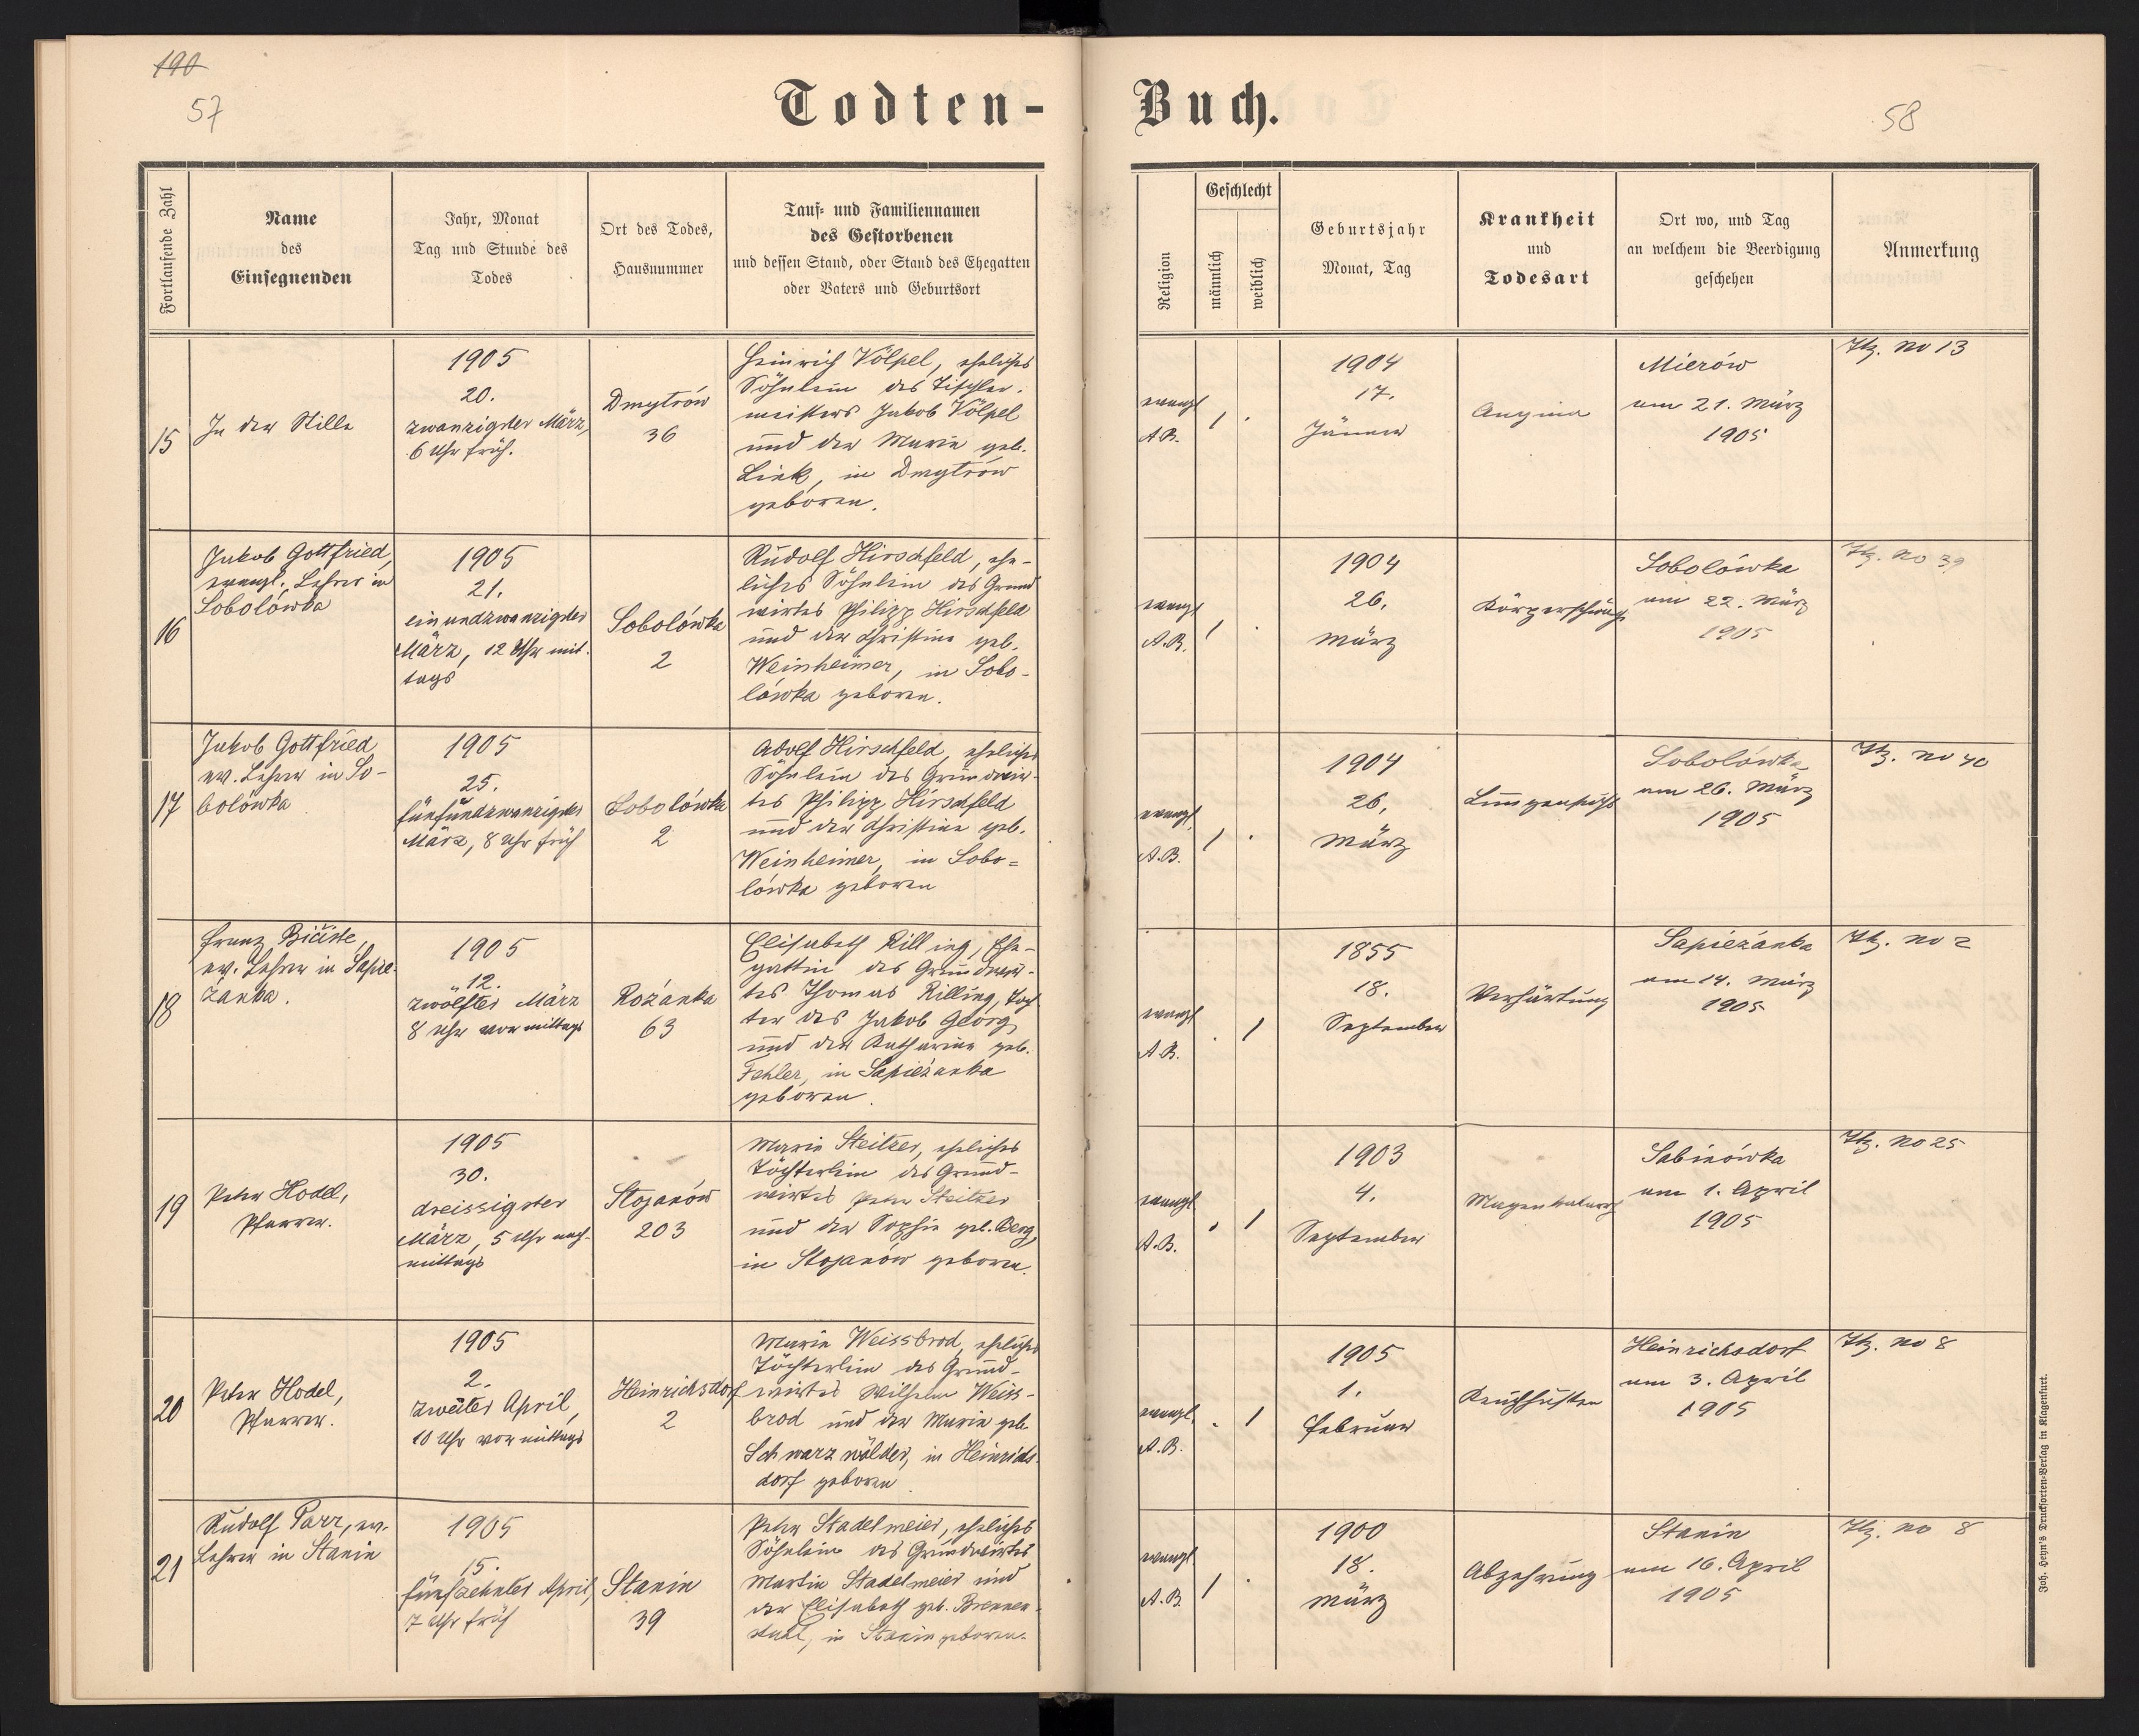 190
57
Todten-
Buch.
58
Fortlaufende Zahl
Name
des
Einsegnenden
Jahr, Monat
Tag und Stunde des
Todes
Ort des Todes,
Hausnummer
Tauf- und Familiennamen
des Gestorbenen
und dessen Stand, oder Stand des Ehegatten
oder Vaters und Geburtsort
Religion
Geschlecht
männlich
weiblich
Geburtsjahr
Monat, Tag
Krankheit
und
Todesart
Ort wo, und Tag
an welchem die Beerdigung
geschehen
Anmerkung
15
In der Stille
1905
20.
zwanzigster März,
6 Uhr früh.
Dmytrów
36
Heinrich Völpel, eheliches
Söhnlein des Tischler-
meisters Jakob Völpel
und der Maria geb.
Link, in Dmytrów
geboren.
evangl
A.B.
1 .
1904
17.
Jänner
Angina
Mierów
am 21. März
1905
Hz. no 13
16
Jakob Gottfried,
evangl. Lehrer in
Sobolówka
1905
21.
einundzwanzigster
März, 12 Uhr mit-
tags
Sobolówka
2
Rudolf Hirschfeld, ehe-
liches Söhnlein des Grund
wirtes Philipp Hirschfeld
und der Christine geb.
Weinheimer, in Sobo-
lówka geboren.
evangl
A.B.
1 .
1904
26.
März
Körperschwäche
Sobolówka
am 22. März
1905
Hz. no 39
17
Jakob Gottfried
ev. Lehrer in So-
bolówka
1905
25.
fünfundzwanzigster
März, 8 Uhr früh
Sobolówka
2
Adolf Hirschfeld, eheliches
Söhnlein des Grundwir-
tes Philipp Hirschfeld
und der Christine geb.
Weinheimer, in Sobo-
lówka geboren
evangl.
A.B.
1 .
1904
26.
März
Sobolówka
am 26. März
1905
Hz. no 40
18
Franz Bičiste,
ev. Lehrer in Sapie-
żanka.
1905
12.
zwölfter März
8 Uhr vormittags
Rożanka
63
Elisabeth Rilling, Ehe-
gattin des Grundwir-
tes Thomas Rilling, Toch
ter des Jakob Georg
und der Katharina geb.
Fehler, in Sapieżanka
geboren.
evangl
A.B.
. 1
1855
18.
September
Verhärtung
Sapieżanka
am 14. März
1905
Hz. no 2
19
Peter Hodel,
Pfarrer.
1905
30.
dreissigster
März, 5 Uhr nach-
mittags
Stojanów
203
Maria Steitzer, eheliches
Töchterlein des Grund-
wirtes Peter Steitzer
und der Sophie geb. Berg,
in Stojanów geboren.
evangl
A.B.
. 1
1903
4.
September
Magenkatarrh
Sabinówka
am 1. April
1905
Hz. no 25
20
Peter Hodel,
Pfarrer.
1905
2.
zweiter April,
10 Uhr vormittags
Heinrichsdorf
2
Maria Weissbrod, eheliches
Töchterlein des Grund-
wirtes Wilhelm Weiss-
brod und der Maria geb.
Schwarzwälder, in Heinrichs-
dorf geboren.
evangl.
A.B.
. 1
1905
1.
Februar
Keuchhusten
Heinrichsdorf
am 3. April
1905
Hz. no 8
21
Rudolf Parr, ev.
Lehrer in Stanin
1905
15.
fünfzehnter April,
7 Uhr früh
Stanin
39
Peter Stadelmeier, eheliches
Söhnlein des Grundwirtes
Martin Stadelmeier und
der Elisabeth geb. Brennen-
stuhl, in Stanin geboren.
evangl.
A.B.
1 .
1900
18.
März
Abzehrung
Stanin
am 16. April
1905
Hz. no 8
Joh. Heyn's Drucksorten-Verlag in Klagenfurt.